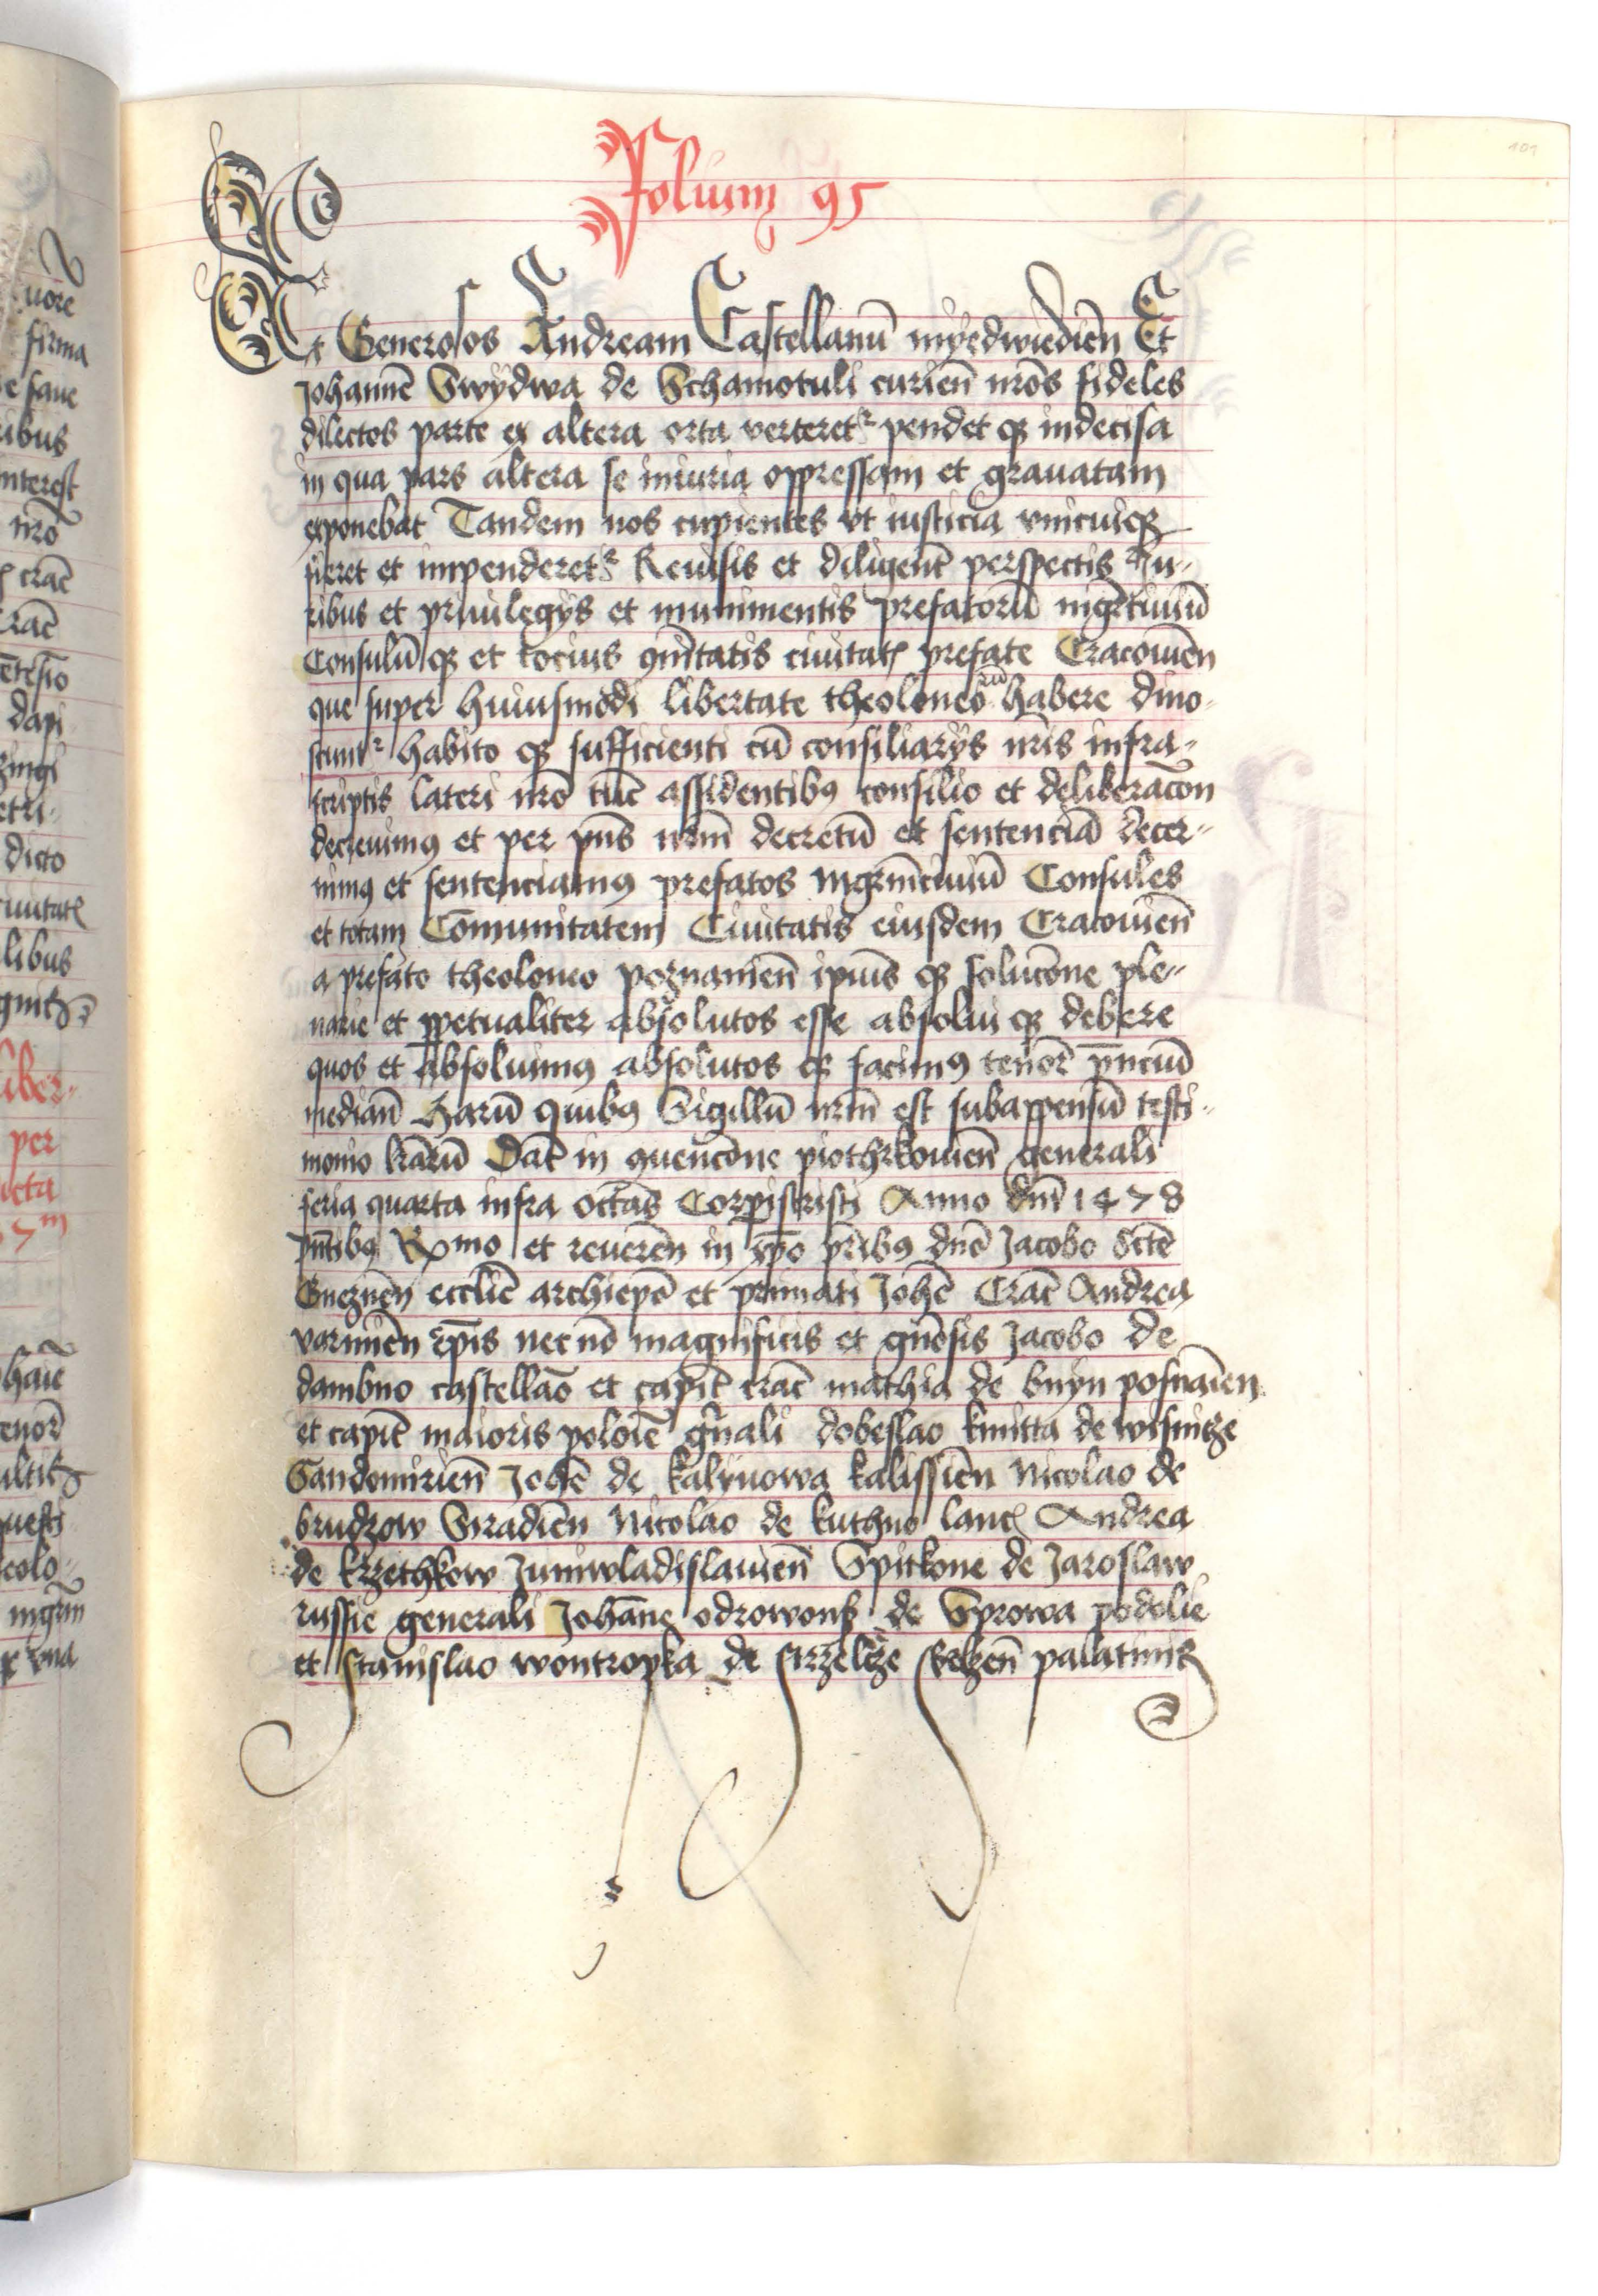 101
Folium 95
Et Generosos Andream Castellanū myedwiedien̄ Et
Johannē Swydwa de Schamotuli curien̄ nr̄os fideles
dilectos parte ex altera orta verteretr pendet qꝫ indecisa
in qua pars altera se iniuria oppressam et grauatam
exponebat Tandem nos cupientes vt iusticia vnicuiqꝫ
fieret et impenderetr Reuisis et diligent̄ perspectis Iu-
ribus et priuilegÿs et munimentis prefatorū
Consulū qꝫ et tocius ꝯmūitatis ciuitatꝭ prefate Cracouien̄
que super huiusmodi libertate theoloneorū habere dino-
scuntr habito qꝫ sufficienti cū consiliarÿs nr̄is infra-
scriptis lateri nr̄o tūc assidentibꝯ consilio et deliberac̄on
decreuimꝯ et per pn̄s nr̄m decretū et sentenciā decer-
nimꝯ et sentenciamꝯ prefatos Consules
et totam Cōmunitatem Ciuitatis eiusdem Cracouien̄
a prefato theoloneo poznanien̄ ipiūs qꝫ soluc̄one ple-
narie et ꝑpetualiter absolutos esse absolui qꝫ debere
quos et absoluimꝯ absolutos qꝫ facimꝯ tenor̄ pn̄ciū
median̄ Harū quibꝯ Sigillū nr̄m est subappensū testi-
monio lr̄arū Dat̄ in ꝯuenc̄one piothrkouien̄ generali
feria quarta infra octa̅s Corpīscristi Anno dn̄i 1478
pn̄tibꝯ Rx̄mo et reueren̄ in xp̄o pr̄ibꝯ dn̄o Jacobo sc̄te
Gneznen̄ eccl̄ie archiepō et primati Joh̄e Crac̄ Andrea
varmien̄ ep̄is nec nō magnificis et gn̄osis Jacobo de
dambno castellāo et capit̄ crac̄ mathia de bnyn posnāien
et capit̄ maioris polōie gn̄ali dobeslao kmitta de wisnitze
Sandomirien̄ Joh̄e de kalynowa kalissien̄ Nicolao de
brudzow Siradien̄ Nicolao de kuthno lancꝭ Andrea
de krzethkow Juniwladislauien̄ Spitkone de Jaroslaw
russie generali Joh̄ane odrowonsz de Sprowa podolie
et stanislao wontropka de strzeltze belzen̄ palatinis